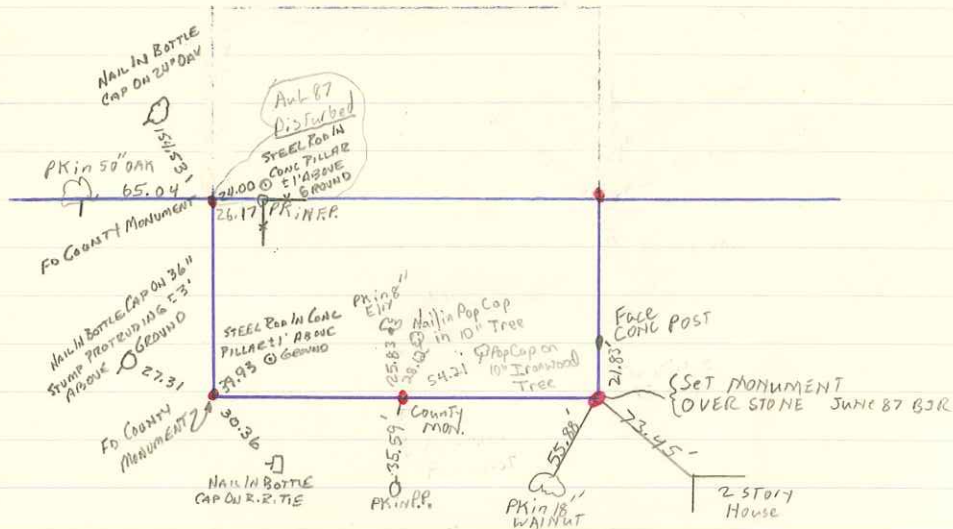 NAIL IN BOTTLE
CAP ON 24" OAK
154.53'
Aug 87
Disturbed
STEEL ROD IN
CONC PILLAR
±1' ABOVE
GROUND
PK in 50" OAK
65.04'
24.00
26.17
PK IN F.P.
FD COUNTY MONUMENT
NAIL IN BOTTLE CAP ON 36"
STUMP PROTRUDING ±3'
ABOVE GROUND
27.31
STEEL ROD IN CONC
PILLAR ±1' ABOVE
GROUND
39.93
PK in 8"
Elm
25.83
Nail in Pop Cap
in 10" Tree
28.12
54.21
Pop Cap on
10" Ironwood
Tree
Face
CONC POST
21.83'
SET MONUMENT
OVER STONE JUNE 87 BJR
FD COUNTY
MONUMENT
30.36
NAIL IN BOTTLE
CAP ON R.R. TIE
COUNTY
MON.
35.59'
PK IN P.P.
55.88'
PK in 18"
WALNUT
73.45'
2 STORY
House